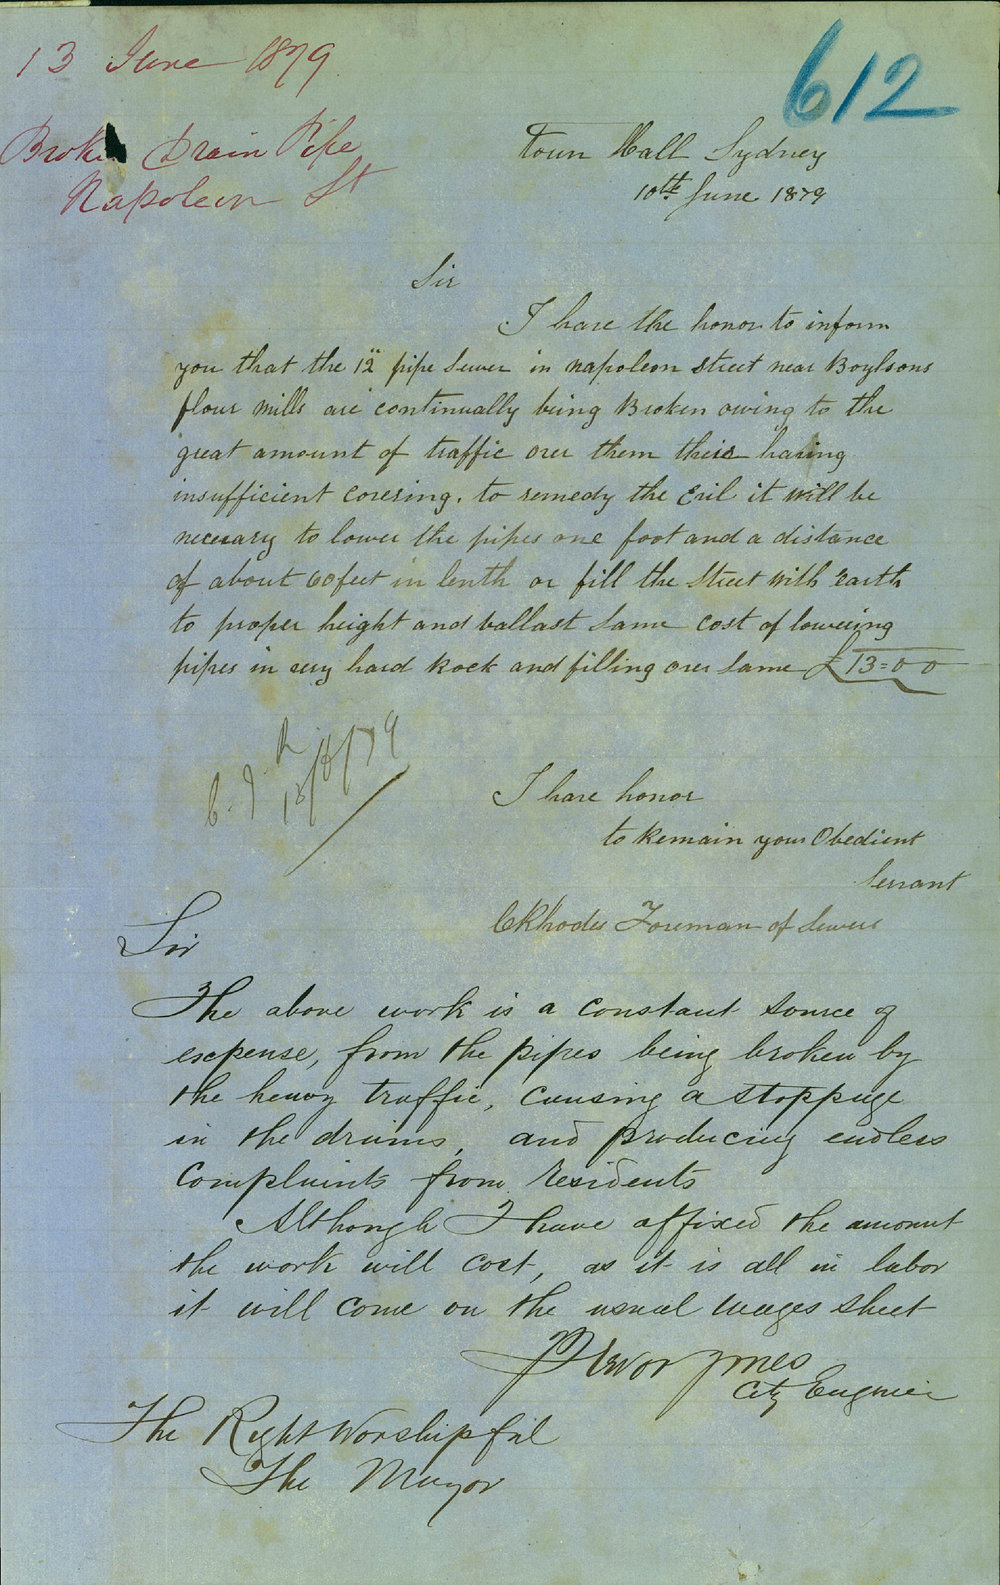 13 June 1879
612
Broken Drain Pipe
Napoleon St
Town Hall Sydney
10th June 1879
Sir
I have the honor to inform
you that the 12" pipe Sewer in napoleon street near Boylsons
flour mills are continually being Broken owing to the
great amount of traffic over them their having
insufficient covering. to remedy the Evil it will be
necessary to lower the pipes one foot and a distance
of about 60 feet in lenth or fill the Street with Earth
to proper height and ballast same cost of lowering
pipes in very hard Rock and filling over same £13=0 0
13/6/79
I have honor
to Remain your Obedient
Servant
C Rhodes Foreman of Sewers
Sir
The above work is a constant source of
expense, from the pipes being broken by
the heavy traffic, causing a stoppage
in the drains, and producing endless
complaints from residents
Although I have affixed the amount
the work will cost, as it is all in labor
it will come on the usual wages sheet
Trevor Jones
City Engineer
The Right Worshipful
The Mayor